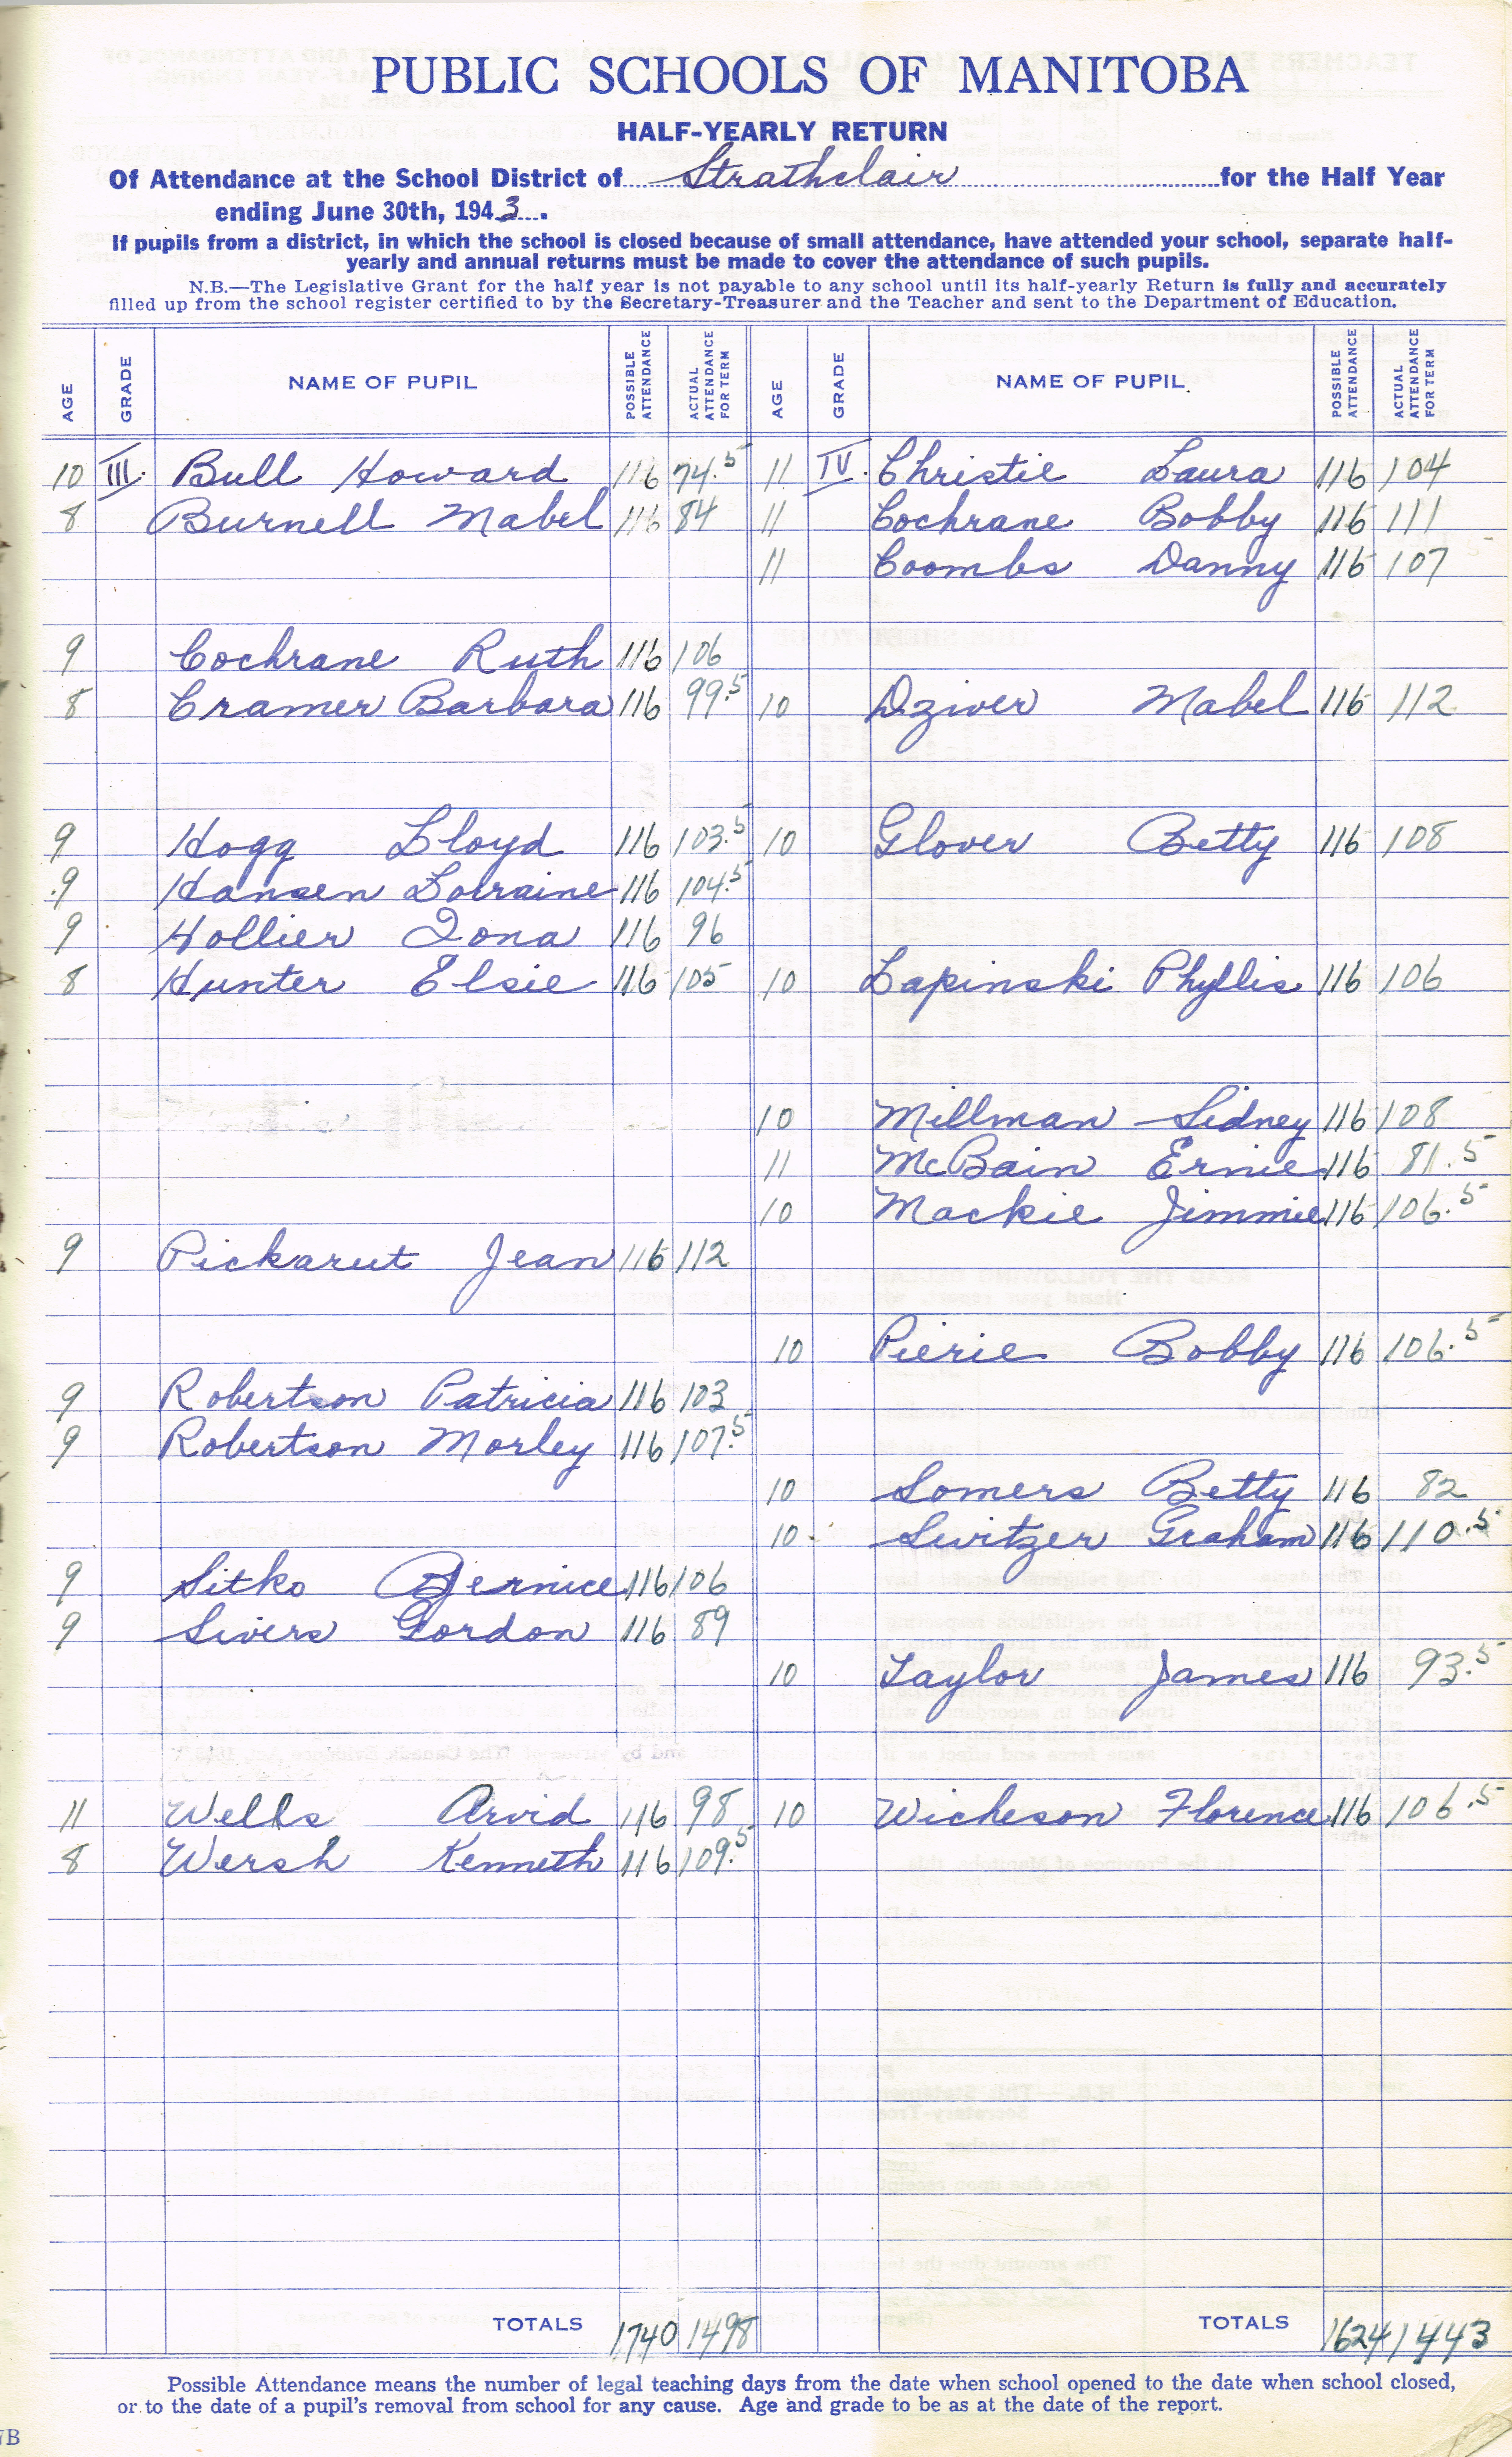 PUBLIC SCHOOLS OF MANITOBA
HALF-YEARLY RETURN
Of Attendance at the School District of Strathclair for the Half Year
ending June 30th, 1943.
If pupils from a district, in which the school is closed because of small attendance, have attended your school, separate half-
yearly and annual returns must be made to cover the attendance of such pupils.
N.B.—The Legislative Grant for the half year is not payable to any school until its half-yearly Return is fully and accurately
filled up from the school register certified to by the Secretary-Treasurer and the Teacher and sent to the Department of Education.
AGE GRADE NAME OF PUPIL POSSIBLE ATTENDANCE ACTUAL ATTENDANCE FOR TERM AGE GRADE NAME OF PUPIL POSSIBLE ATTENDANCE ACTUAL ATTENDANCE FOR TERM
10 III. Bull Howard 116 74.5 11 IV. Christie Laura 116 104
8 Burnell Mabel 116 84 11 Cochrane Bobby 116 111
11 Coombs Danny 116 107
9 Cochrane Ruth 116 106
8 Cramer Barbara 116 99.5 10 Dziver Mabel 116 112
9 Hogg Lloyd 116 103.5 10 Glover Betty 116 108
9 Hansen Lorraine 116 104.5
9 Hollier Iona 116 96
8 Hunter Elsie 116 105 10 Lapinski Phyllis 116 106
10 Millman Sidney 116 108
11 McBain Ernie 116 81.5
10 Mackie Jimmie 116 106.5
9 Pickarut Jean 116 112
10 Pierie Bobby 116 106.5
9 Robertson Patricia 116 103
9 Robertson Morley 116 107.5
10 Somers Betty 116 82
10 Switzer Graham 116 110.5
9 Sitko Bernice 116 106
9 Sivers Gordon 116 89
10 Taylor James 116 93.5
11 Wells Arvid 116 98 10 Wicheson Florence 116 106.5
8 Wersh Kenneth 116 109.5
TOTALS 1740 1498 TOTALS 1624 1443
Possible Attendance means the number of legal teaching days from the date when school opened to the date when school closed,
or to the date of a pupil's removal from school for any cause. Age and grade to be as at the date of the report.